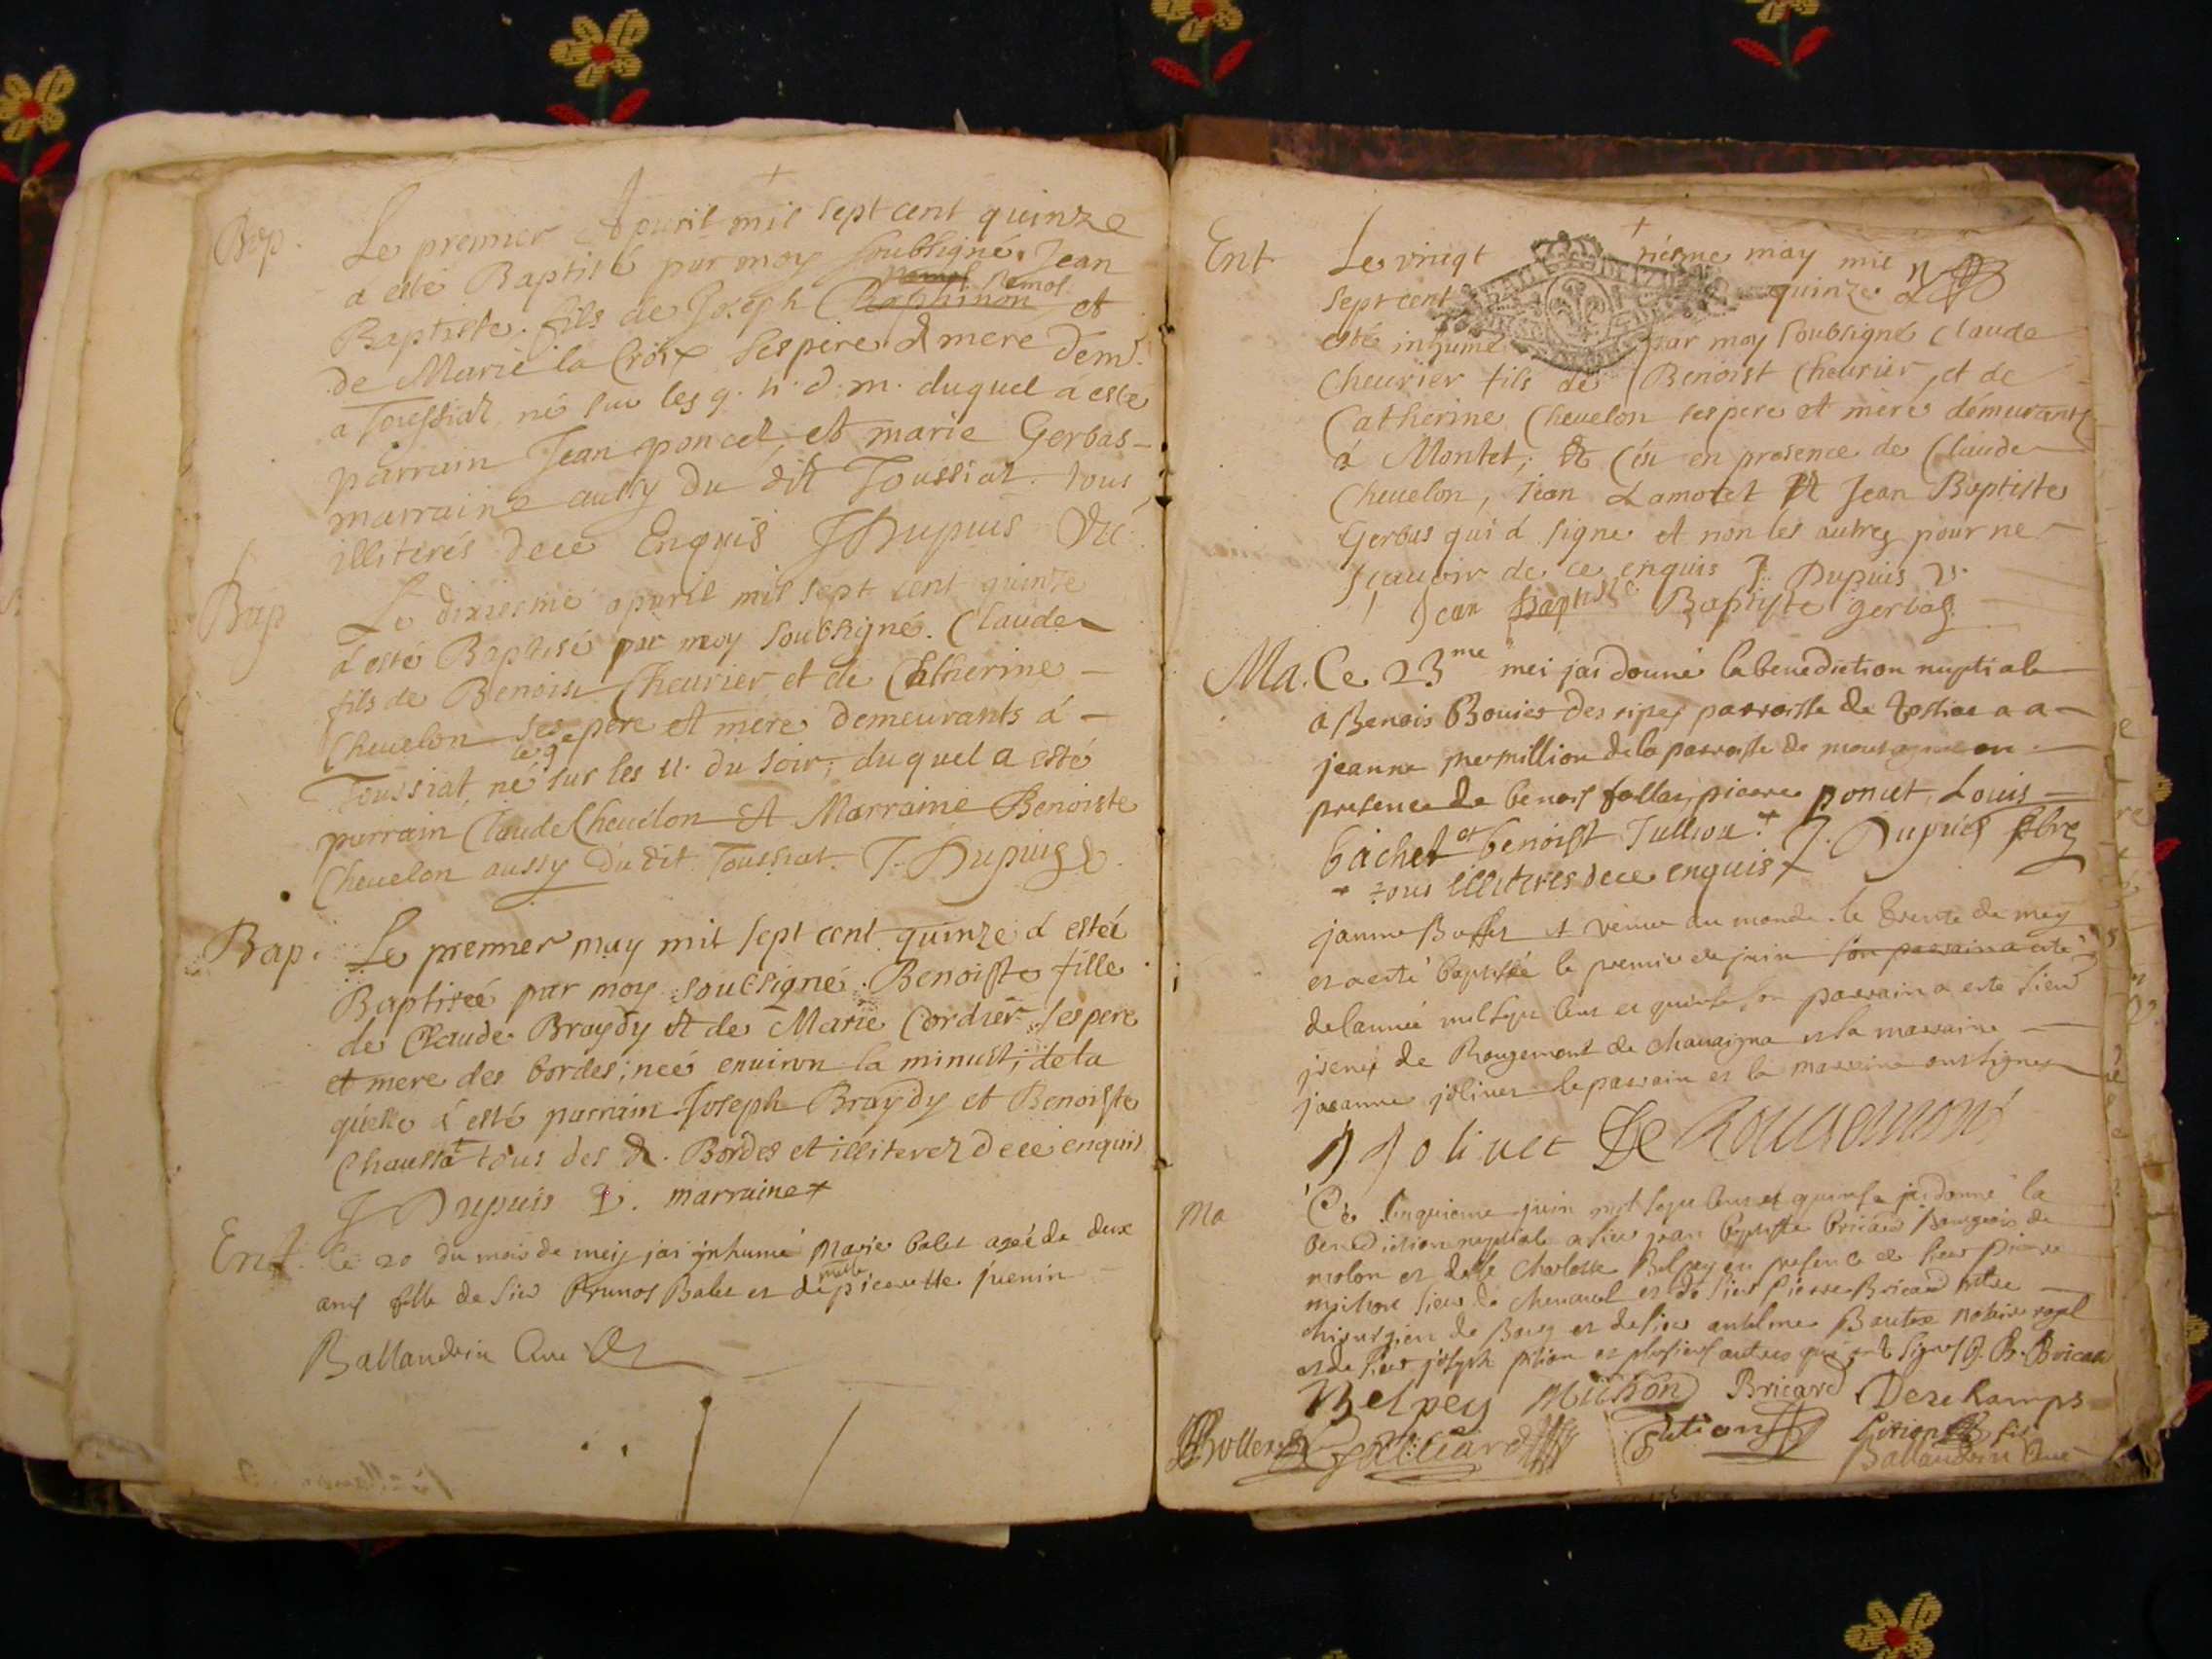 Bap. Le premier Apuril mil sept cent quinze
a esté Baptisé par moy soubsigné. Jean
Baptiste. fils de Joseph et
de Marie la Croix ses pere & mere dem.
a Toussiat, né sur les 9. h. d. m. duquel a esté
parrain Jean poncet, et marie Gerbas-
marraine aussy du dit Toussiat. tous
illiterés dece Enquis J Dupuis Vic.
Bap Le dixiesme apuril mil sept cent quinze
a esté Baptisé par moy soubsigné. Claude
fils de Benoist Cheurier et de Catherine -
Cheuelon ses pere et mere demeurants á -
Toussiat, né le 9e sur les 11. du soir, duquel a esté
parrain Claude Cheuelon et Marraine Benoiste
Cheuelon aussy du dit Toussiat. J. Dupuis v.
Bap. Le premier may mil sept cent quinze a estéé
Baptiseé par moy soubsigné. Benoiste fille
de Claude Braydy et de Marie Cordier ses pere
et mere des bordes; neé enuiron la minuit; de la
quelle á esté parrain Joseph Braydy et Benoiste
Chaussat + tous des d. Bordes et illiterez dece enquis
J Dupuis v. marraine +
Ent. le 20 du mois de mey jai inhumé Marie balet ageé de deux
ans fille de sieu Brunos Balet et de picerette juenin
Ballandrin Curé
Ent Le vingt iesme may mil
sept cent quinze a
esté inhumé par moy soubsigné Claude
Cheurier fils de Benoist Cheurier, et de
Catherine Cheuelon ses pere et mere démeurants
à Montet; et ce en presence de Claude
Cheuelon, Jean Lamotet et Jean Baptiste
Gerbas qui a signe et non les autres pour ne
sçauoir de ce enquis J. Dupuis v.
Jean Baptiste Baptiste gerbas
Ma. Ce 23me mei jai donné la benediction nuptiale
a Benois Bouier des ripes parroisse de tossiat a a
jeanne mermillion de la parroisse de en
presence de benois follet, pierre poncet, Louis
bachet et benoist Jullion. + J. Dupuis pbre
+ tous illiteres dece enquis +
janne Boffet et venue au monde le trente de mey
et a esté baptisée le premier de juin son parrain a esté
de lannée mil sept cens et quinse son parrain a esté sieur
jrené de Rougemont de chauaigna et la marraine
joeanne joliuet le parrain et la marreine ont signes
J Joliuet De Rougemont
Ma Ce sinquieme juin mil sept cens et quinse jai donné la
benediction nuptiale a sieu jean baptiste bricard Bourgeois de
molon et delle charlotte Belpey en presence de sieur pierre
michon sieur de chenauel et de sieur pierre Bricard metre
chirurgien de Bourg et de sieu antelme Bautex notaire royal
et de sieur joseph pition et plusieurs autres qui ont signes J. B. Bricard
Belpey Michon Bricard Deschamps
Pition Pition fils
Ballandrin Curé